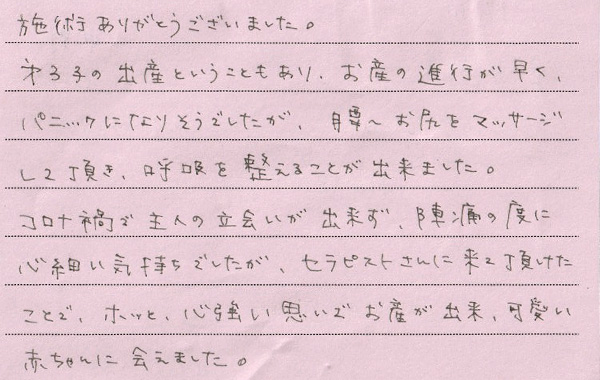 施術ありがとうございました。
第3子の出産ということもあり、お産の進行が早く、
パニックになりそうでしたが、腰〜お尻をマッサージ
して頂き、呼吸を整えることが出来ました。
コロナ禍で主人の立会いが出来ず、陣痛の度に
心細い気持ちでしたが、セラピストさんに来て頂けた
ことで、ホッと、心強い思いでお産が出来、可愛い
赤ちゃんに会えました。